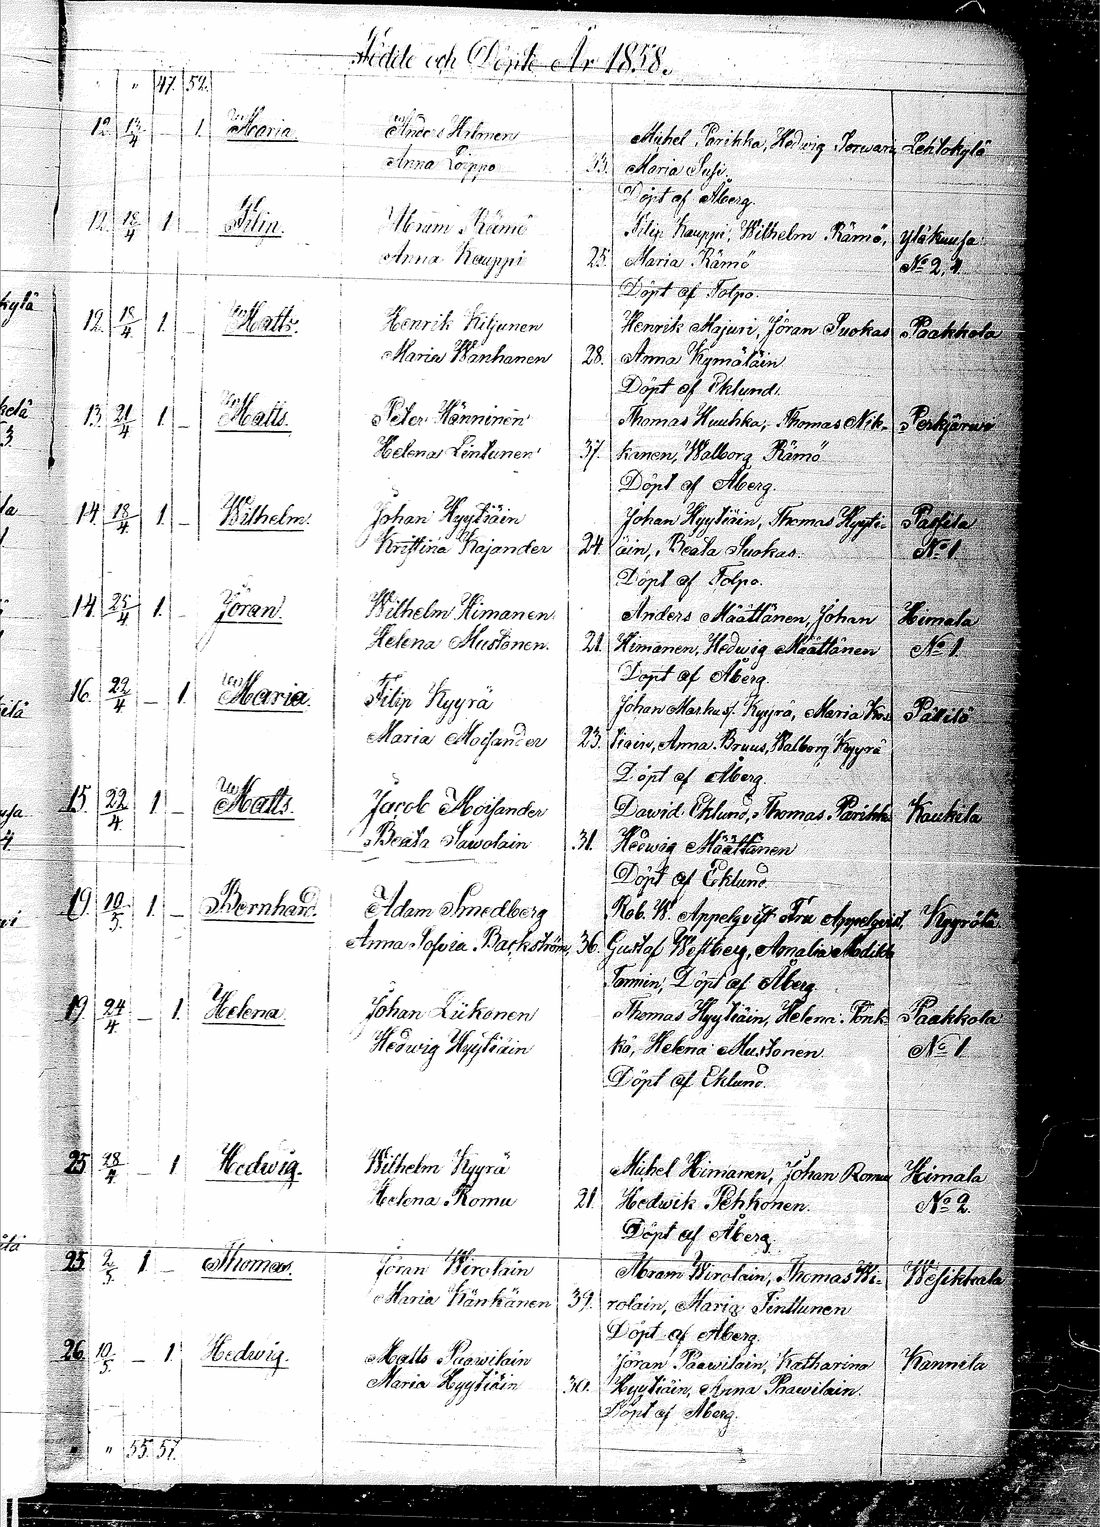 Födde och Döpte År 1858.
" " 47. 52.
12. 13/4 – 1. Maria. Anders Hilmen Michel Parikka, Hedwig Torwari, Lehtokylä
Anna Toippo 33. Maria Susi.
Döpt af Åberg.
12. 18/4 1 – Filip. Abram Rämö Filip Kauppi, Wilhelm Rämö, Yläkuusa
Anna Kauppi 25. Maria Rämö No 2, 4.
Döpt af Tolpo.
12. 18/4 1. – Matts. Henrik Kiljunen Henrik Majuri, Jöran Suokas Paakkola
Maria Wanhanen 28. Anna Kymäläin
Döpt af Eklund.
13. 21/4 1. – Matts. Peter Hänninen Thomas Huuhka, Thomas Nik- Perkjärwi
Helena Lintunen 37. kanen, Walborg Rämö
Döpt af Åberg.
14. 18/4 1. – Wilhelm. Johan Hyytiäin Johan Hyytiäin, Thomas Hyyti- Passila
Kristina Kajander 24. äin, Beata Suokas. No 1
Döpt af Tolpo.
14. 25/4 1. – Jöran. Wilhelm Himanen Anders Määttänen, Johan Himala
Helena Mustonen. 21. Himanen, Hedwig Määttänen No 1.
Döpt af Åberg.
16. 22/4 – 1. Maria. Filip Kyyrä Johan Markus. Kyyrä, Maria Kos Pällilä
Maria Moisander 23. tiain, Anna Bruus, Walborg Kyyrä
Döpt af Åberg.
15. 22/4 1. – Matts. Jacob Moisander Dawid Eklund, Thomas Parikka Kaukila
Beata Sawolain 31. Hedwig Määttänen
Döpt af Eklund.
19. 10/5. 1. – Bernhard. Adam Smedberg Rob. W. Appelqvist Fru Appelqvist, Kyyrölä.
Anna Sofvia Backström, 36. Gustaf Westberg, Amalia
Tammin, Döpt af Åberg.
19. 24/4 – 1. Helena. Johan Liikonen Thomas Hyytiäin, Helena Ponk- Paakkola
Hedwig Hyytiäin kö, Helena Mustonen No 1
Döpt af Eklund.
25. 28/4 – 1 Hedwig. Wilhelm Kyyrä Michel Himanen, Johan Romu Himala
Helena Romu 21. Hedwik Pehkonen. No 2.
Döpt af Åberg.
25. 2/5. 1 – Thomas. Jöran Wirolain Abram Wirolain, Thomas Wi- Wesikkala
Maria Känkänen 39. rolain, Maria Tinttunen
Döpt af Åberg.
26. 10/5. – 1. Hedwig. Matts Paawilain Jöran Paawilain, Katharina Kannila
Maria Hyytiäin 30. Hyytiäin, Anna Paawilain.
Döpt af Åberg.
" " 55. 57.